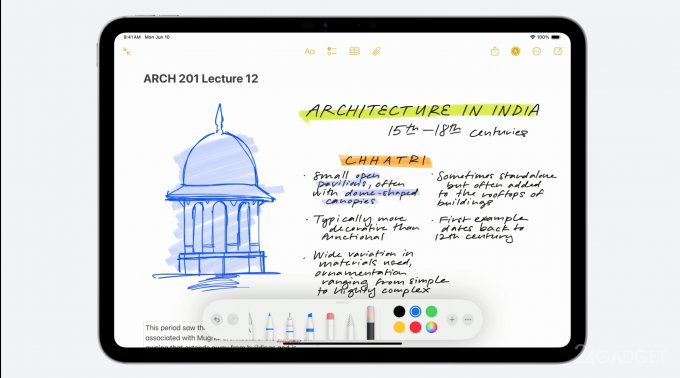 9:41AM Mon Jun 10
100%
Aa
ARCH 201 Lecture 12
ARCHITECTURE IN INDIA
15th–18th centuries
CHHATRI
· Small open
pavilions, often
with dome-shaped
canopies
· Typically more
decorative than
functional
· Wide variation in
materials used,
ornamentation
ranging from simple
to highly complex
· Sometimes standalone
but often added
to the rooftops of
buildings
· First example
dates back to
12th century
This period saw th
associated with Mugh
GADGET